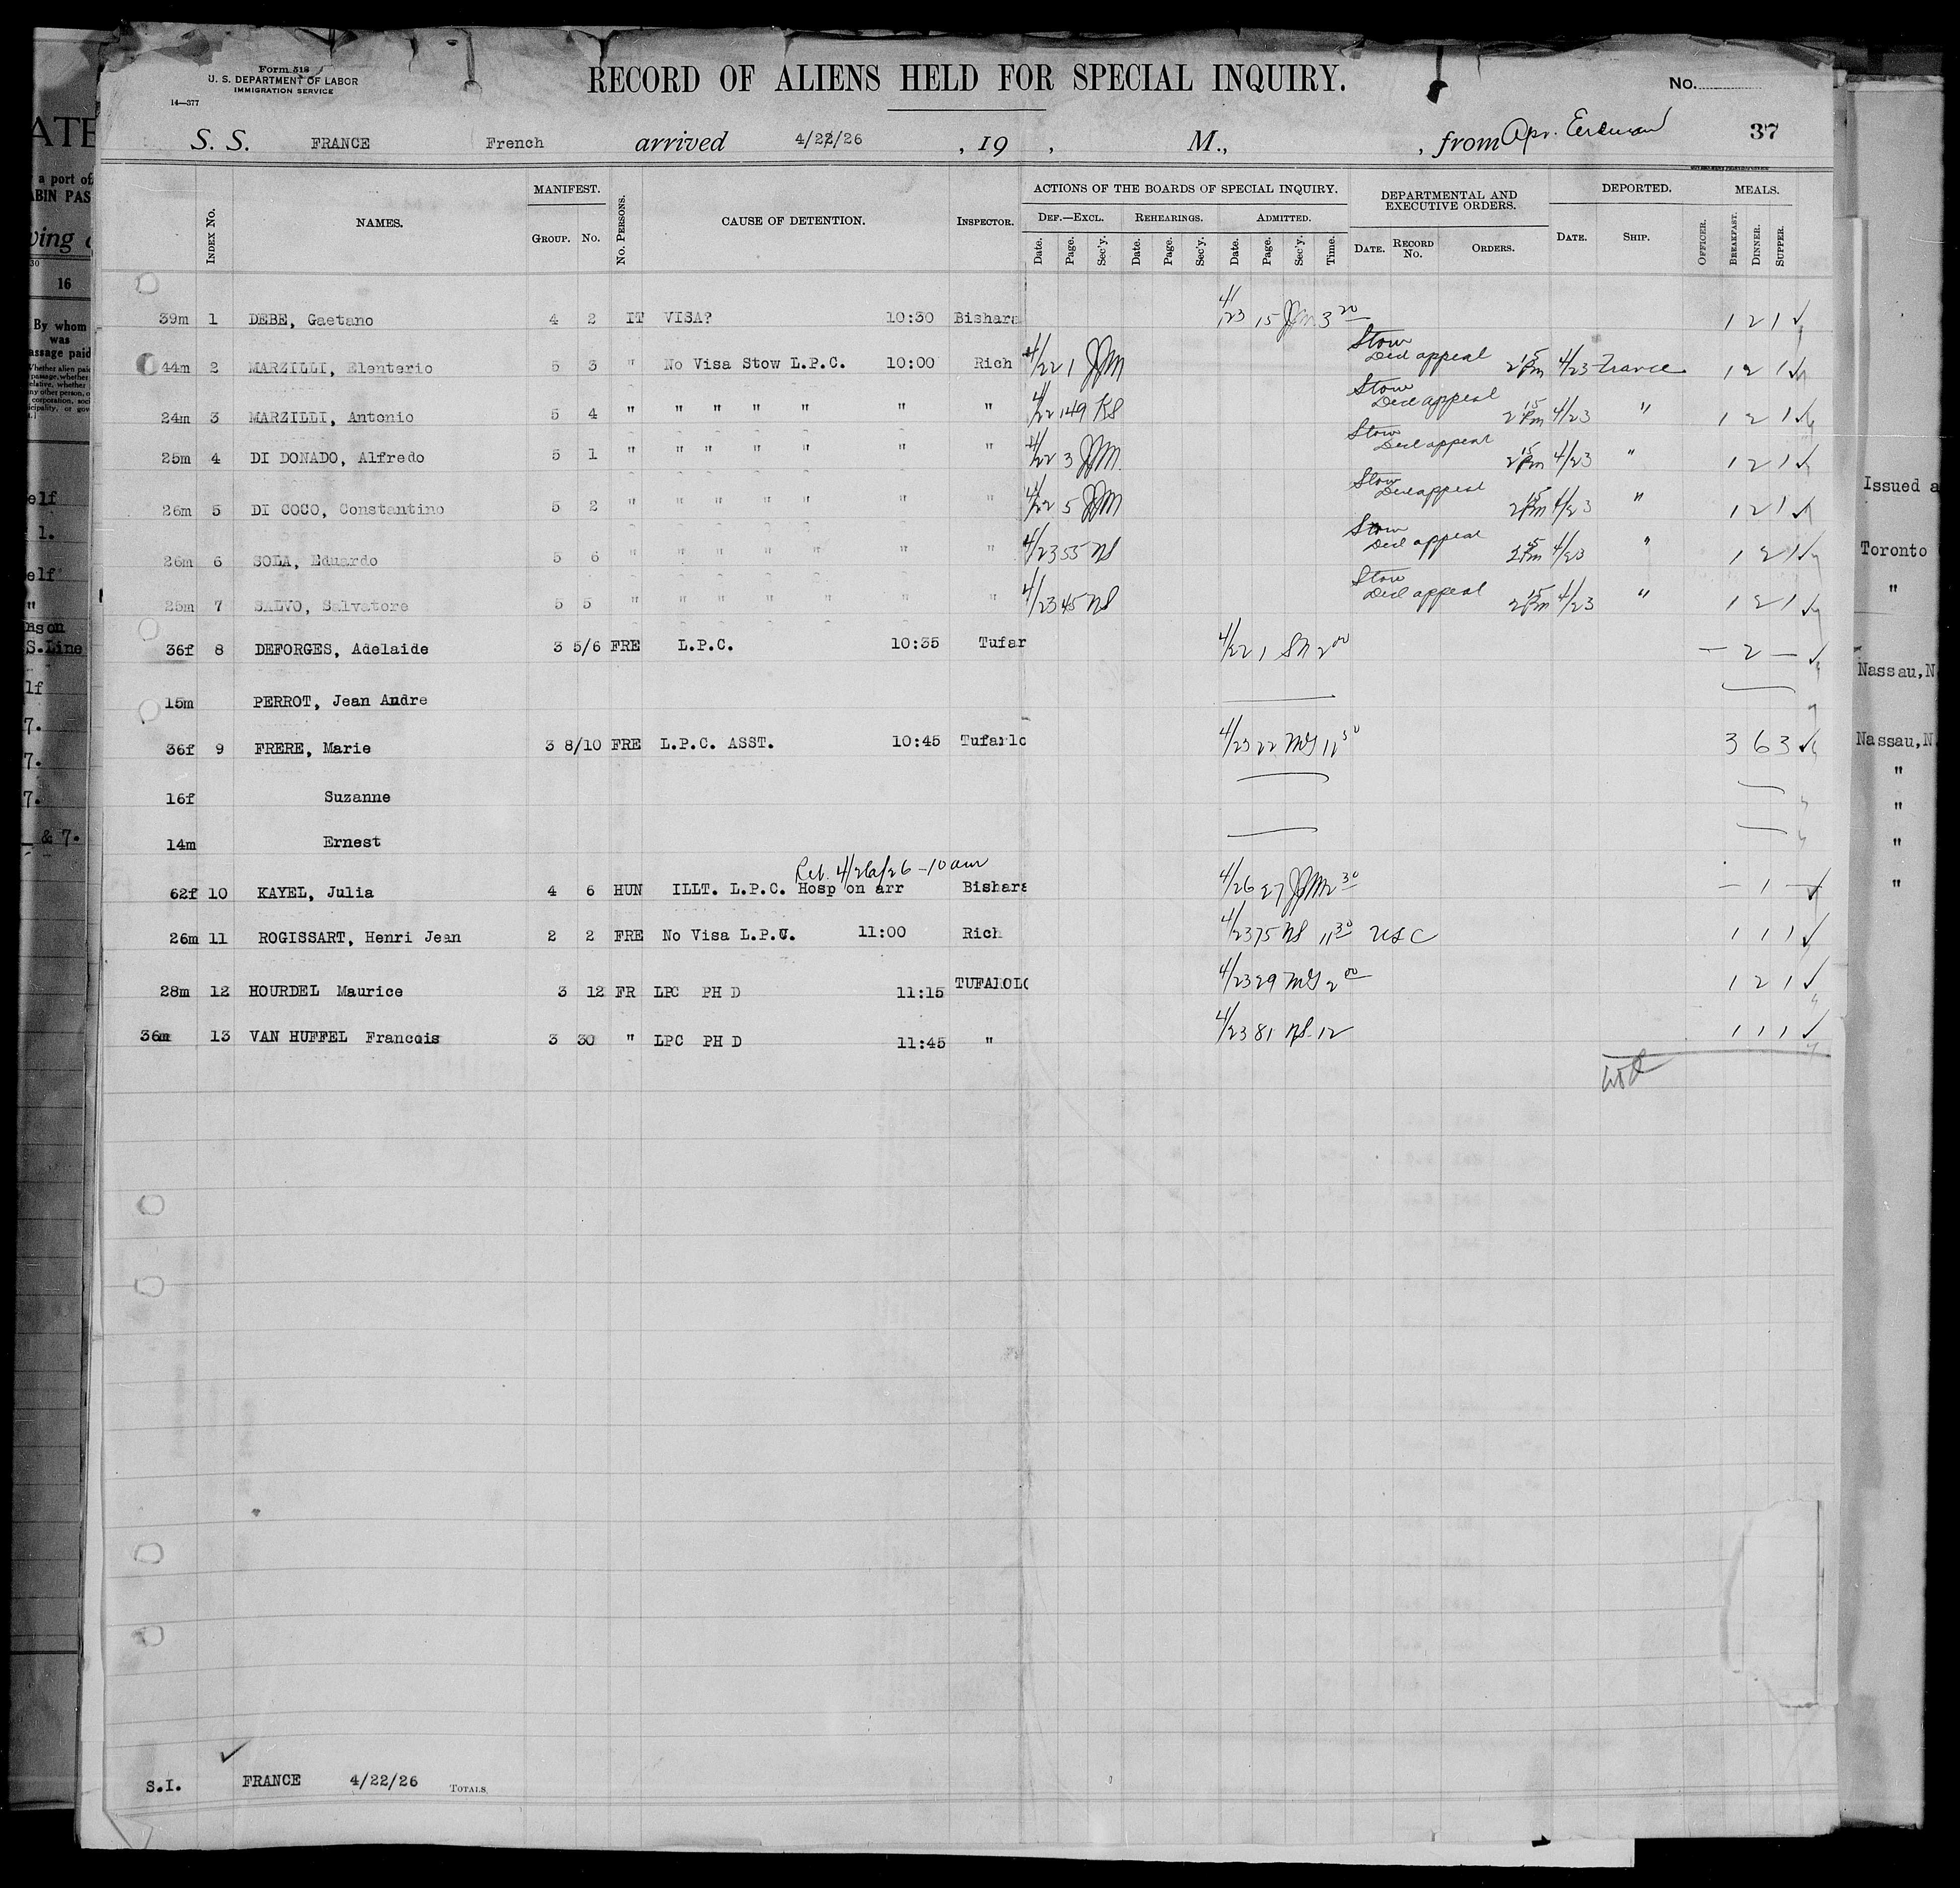 Form 518
U. S. DEPARTMENT OF LABOR
IMMIGRATION SERVICE
14—377
RECORD OF ALIENS HELD FOR SPECIAL INQUIRY.
No.
S. S. FRANCE French arrived 4/22/26 , 19 , M., , from Apr. 37
INDEX No. NAMES. MANIFEST. GROUP. No. No. PERSONS. CAUSE OF DETENTION. INSPECTOR. ACTIONS OF THE BOARDS OF SPECIAL INQUIRY. DEF.—EXCL. REHEARINGS. ADMITTED. Date. Page. Sec'y. Date. Page. Sec'y. Date. Page. Sec'y. Time. DEPARTMENTAL AND EXECUTIVE ORDERS. DATE. RECORD No. ORDERS. DEPORTED. DATE. SHIP. OFFICER. MEALS. BREAKFAST. DINNER. SUPPER.
39m 1 DEBE, Gaetano 4 2 IT VISA? 10:30 Bishara 4/23 15 JJM 3 20 1 2 1
44m 2 MARZILLI, Elenterio 5 3 " No Visa Stow L.P.C. 10:00 Rich 4/22 1 JJM Stow Decl appeal 2 15 Pm 4/23 France 1 2 1
24m 3 MARZILLI, Antonio 5 4 " " " " " " " 4/22 149 KS Stow Decl appeal 2 15 Pm 4/23 " 1 2 1
25m 4 DI DONADO, Alfredo 5 1 " " " " " " " 4/22 3 JJM Stow Decl appeal 2 15 Pm 4/23 " 1 2 1
26m 5 DI COCO, Constantino 5 2 " " " " " " " 4/22 5 JJM Stow Decl appeal 2 15 Pm 4/23 " 1 2 1
26m 6 SOLA, Eduardo 5 6 " " " " " " " 4/23 55 NS Stow Decl appeal 2 15 Pm 4/23 " 1 2 1
25m 7 SALVO, Salvatore 5 5 " " " " " " " 4/23 45 NS Stow Decl appeal 2 15 Pm 4/23 " 1 2 1
36f 8 DEFORGES, Adelaide 3 5/6 FRE L.P.C. 10:35 Tufar 4/22 1 SN 2 00 — 2 —
15m PERROT, Jean Andre
36f 9 FRERE, Marie 3 8/10 FRE L.P.C. ASST. 10:45 Tufarlo 4/23 22 MG 11 50 3 6 3
16f Suzanne
14m Ernest
Rel. 4/26/26 - 10 am
62f 10 KAYEL, Julia 4 6 HUN ILLT. L.P.C. Hosp on arr Bishara 4/26 27 JJM 2 30 — 1 —
26m 11 ROGISSART, Henri Jean 2 2 FRE No Visa L.P.C. 11:00 Rich 4/23 75 NS 11 30 USC 1 1 1
28m 12 HOURDEL Maurice 3 12 FR LPC PH D 11:15 TUFAROLO 4/23 29 MG 2 00 1 2 1
36m 13 VAN HUFFEL Francois 3 30 " LPC PH D 11:45 " 4/23 81 NS 12 1 1 1
S.I. FRANCE 4/22/26 TOTALS
ATE
a port of
ABIN PAS
16
By whom
was
assage paid
elf
1.
elf
"
S.Line
lf
7.
7.
7.
& 7.
Issued a
Toronto
"
Nassau, N
Nassau, N
"
"
"
"